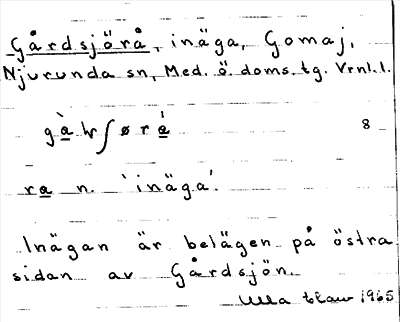 Gårdsjörå, inäga, Gomaj,
Njurunda sn, Med. ö. doms. tg. Vrnl. l.
8
ra n. 'inäga'.
Inägan är belägen på östra
sidan av Gårdsjön.
Ulla 1965